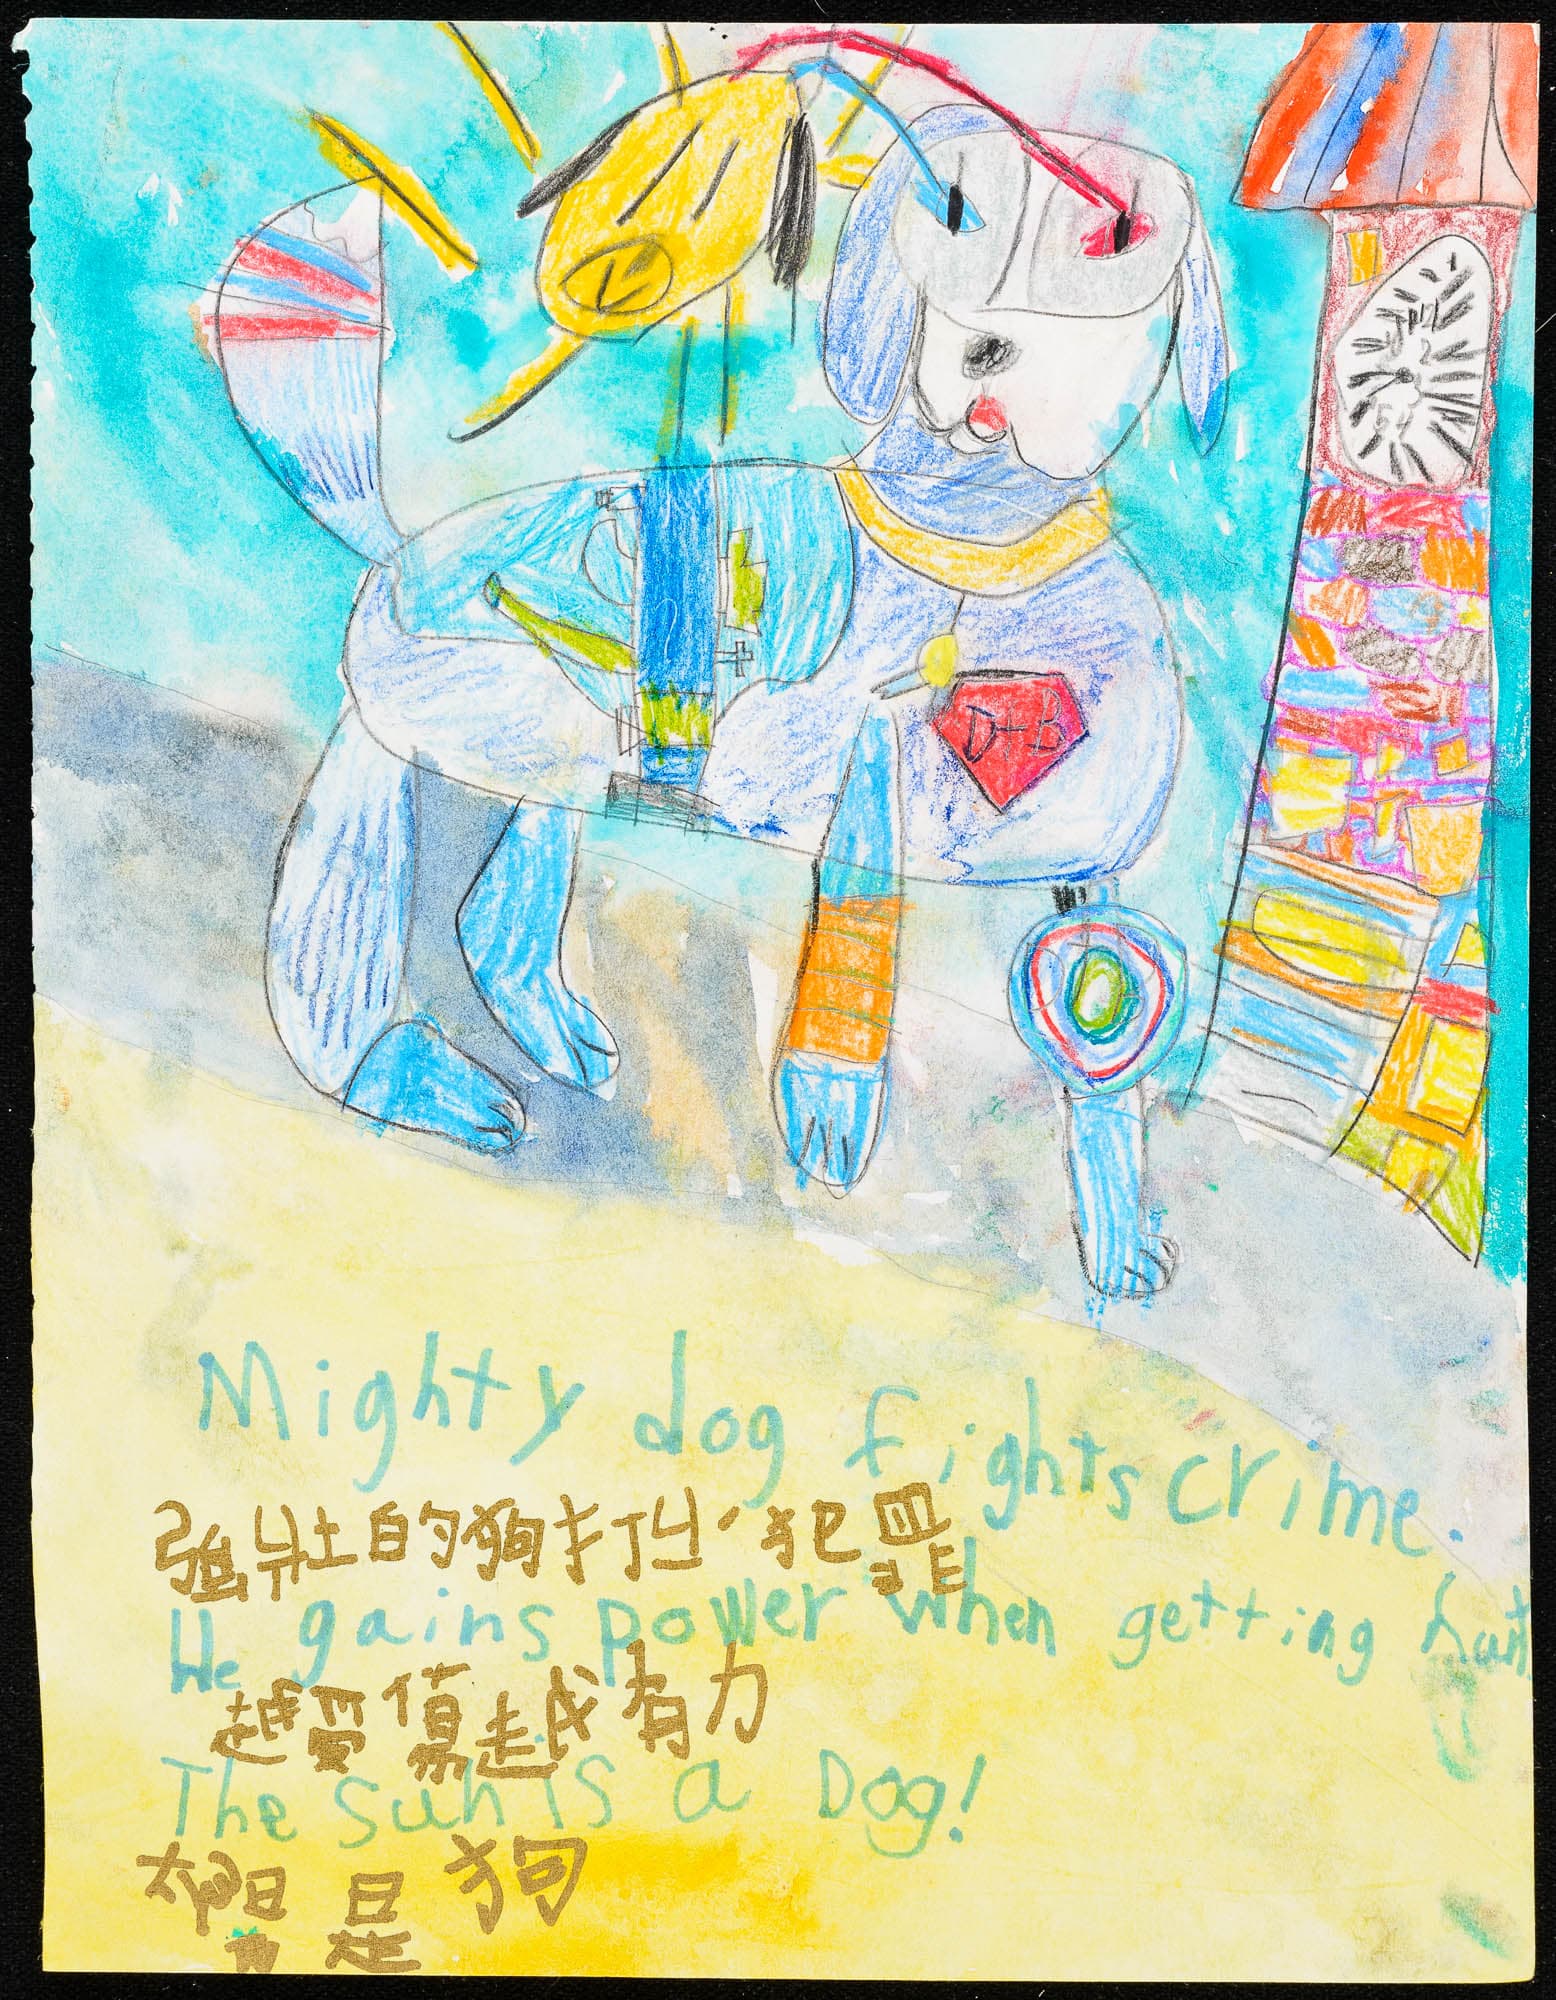 D+B
Mighty dog fights crime.
強壯的狗打犯罪
He gains power when getting hurt
越受傷越有力
The sun is a Dog!
太陽是狗